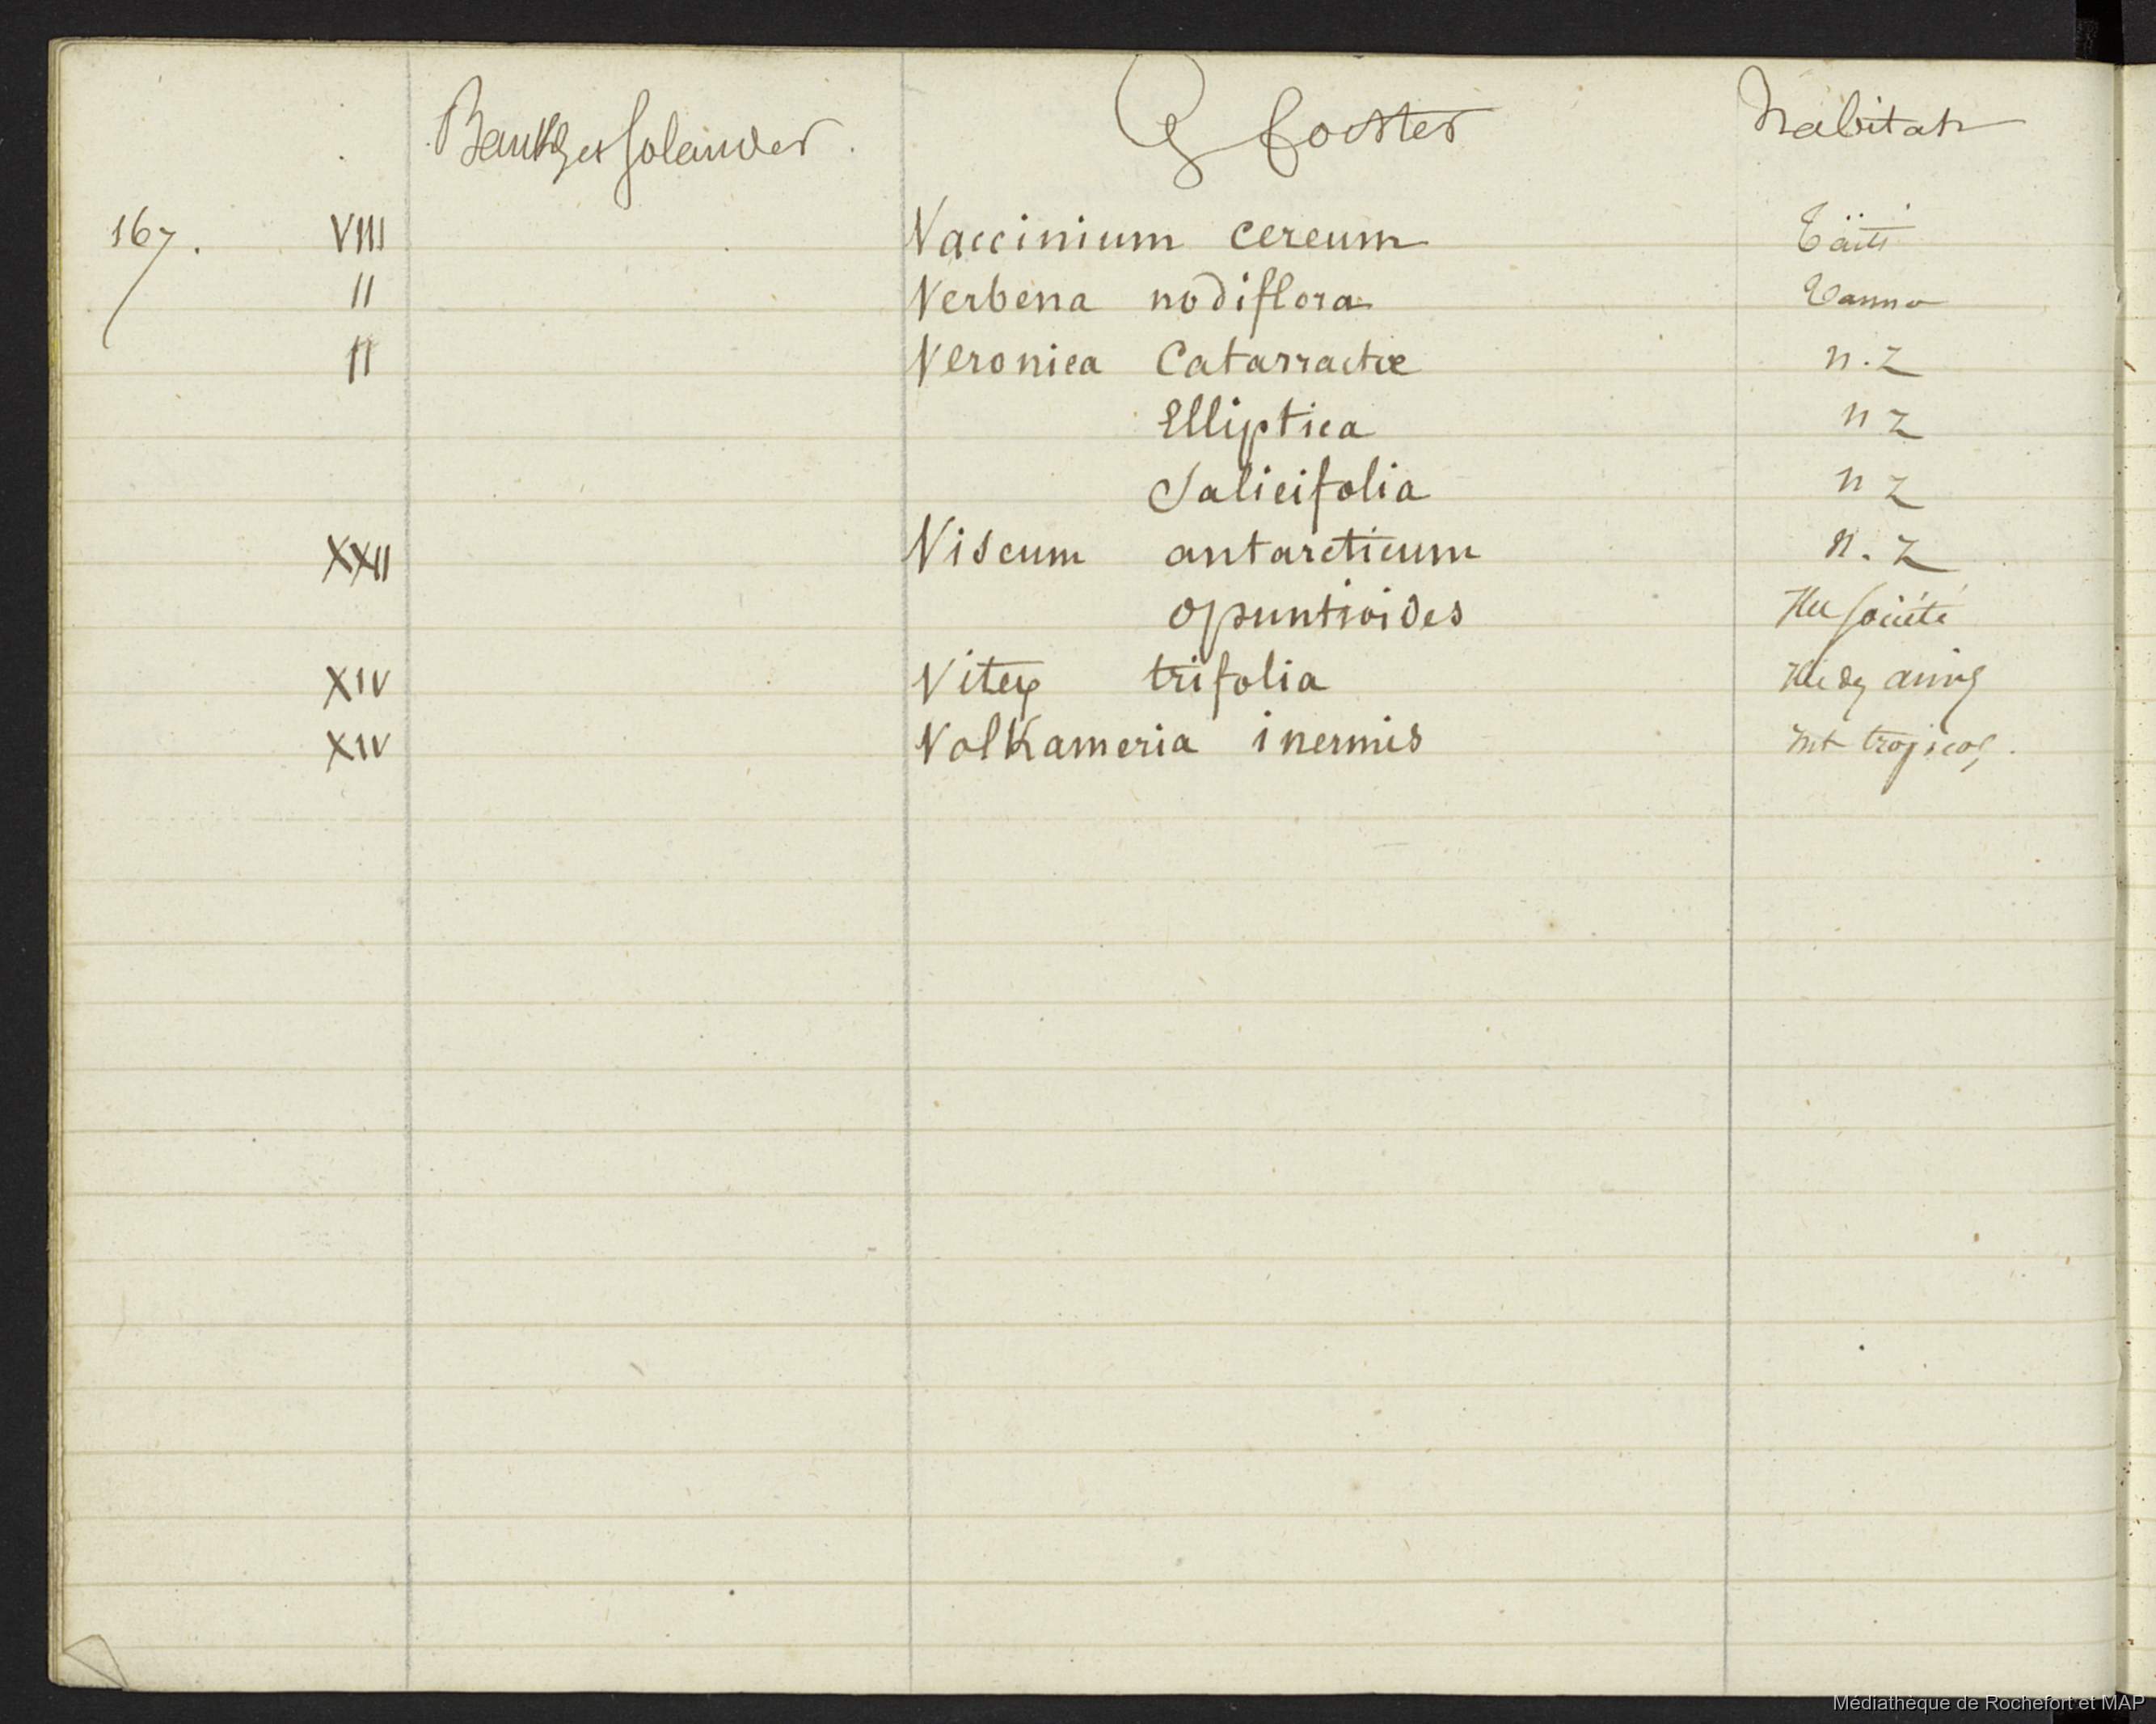 Banks et Solander. G forster habitat
167. VIII Vaccinium cereum Täiti
II Verbena nodiflora Tanna
II Veronica Catarractæ n.z
Elliptica n z
Salicifolia n z
XXII Viscum antarcticum n.z
opuntioides Ile Société
XIV Vitex trifolia Ile des amis
XIV Volkameria inermis int tropicos.
Médiathèque de Rochefort et MAP